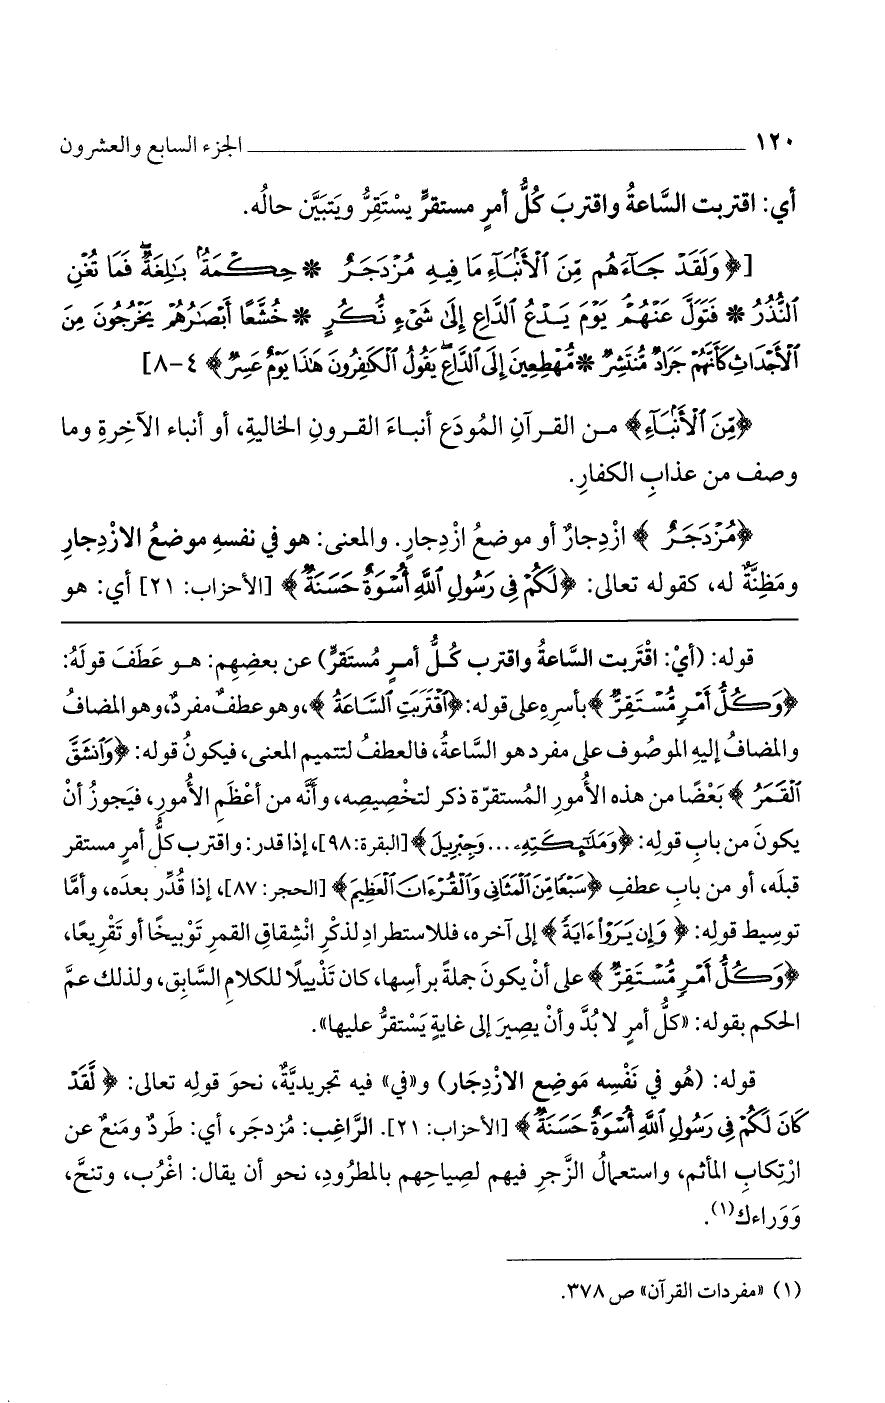 ١٢٠ ــــــــــــــــــــــــــــــــ الجزء السابع والعشرون
أي: اقتربت السَّاعةُ واقتربَ كُلُّ أمرٍ مستقرٍّ يسْتَقِرُّ ويَتبَيَّن حالُه.
[﴿وَلَقَدْ جَآءَهُم مِّنَ ٱلْأَنۢبَآءِ مَا فِيهِ مُزْدَجَرٌ * حِكْمَةٌۢ بَٰلِغَةٌ ۖ فَمَا تُغْنِ
ٱلنُّذُرُ * فَتَوَلَّ عَنْهُمْ ۘ يَوْمَ يَدْعُ ٱلدَّاعِ إِلَىٰ شَىْءٍ نُّكُرٍ * خُشَّعًا أَبْصَٰرُهُمْ يَخْرُجُونَ مِنَ
ٱلْأَجْدَاثِ كَأَنَّهُمْ جَرَادٌ مُّنتَشِرٌ * مُّهْطِعِينَ إِلَى ٱلدَّاعِ ۖ يَقُولُ ٱلْكَٰفِرُونَ هَٰذَا يَوْمٌ عَسِرٌ﴾ ٤-٨]
﴿مِّنَ ٱلْأَنۢبَآءِ﴾ مـن القـرآنِ المُودَع أنبـاءَ القـرونِ الخاليةِ، أو أنباء الآخِرةِ وما
وصف من عذابِ الكفارِ.
﴿مُزْدَجَرٌ﴾ ازْدِجارٌ أو موضعُ ازْدِجارٍ. والمعنى: هو في نفسهِ موضعُ الازْدِجارِ
ومَظِنَّةٌ له، كقوله تعالى: ﴿لَكُمْ فِى رَسُولِ ٱللَّهِ أُسْوَةٌ حَسَنَةٌ﴾ [الأحزاب: ٢١] أي: هو
قوله: (أيْ: اقْتَربت السَّاعةُ واقترب كُـلُّ أمـرٍ مُستَقرٍّ) عن بعضِهِم: هـو عَطَفَ قولَهُ:
﴿وَكُلُّ أَمْرٍ مُّسْتَقِرٌّ﴾ بأسرِهِ على قوله: ﴿ٱقْتَرَبَتِ ٱلسَّاعَةُ﴾، وهو عطفُ مفردٌ، وهو المضافُ
والمضافُ إليهِ الموصُوف على مفردٍ هو السَّاعةُ، فالعطفُ لتتميم المعنى، فيكونُ قوله: ﴿وَٱنشَقَّ
ٱلْقَمَرُ﴾ بَعْضًا من هذه الأُمورِ المُستقرّة ذكر لتخْصِيصِه، وأَنَّه من أعْظَمِ الأُمورِ، فيَجوزُ أنْ
يكونَ من بابِ قولِه: ﴿وَمَلَٰٓئِكَتِهِۦ ... وَجِبْرِيلَ﴾ [البقرة: ٩٨]، إذا قدر: واقترب كلُّ أمرٍ مستقر
قبلَه، أو من بابِ عطفِ ﴿سَبْعًا مِّنَ ٱلْمَثَانِى وَٱلْقُرْءَانَ ٱلْعَظِيمَ﴾ [الحجر: ٨٧]، إذا قُدِّر بعدَه، وأمَّا
توسِيط قولِه: ﴿وَإِن يَرَوْا۟ ءَايَةً﴾ إلى آخره، فللاستطرادِ لذكْرِ انْشِقاقِ القمرِ تَوْبيخًا أو تَقْريعًا،
﴿وَكُلُّ أَمْرٍ مُّسْتَقِرٌّ﴾ على أنْ يكونَ جملةً برأسِها، كان تَذْييلًا للكلامِ السَّابِق، ولذلك عمَّ
الحكم بقوله: «كلُّ أمرٍ لا بُدَّ وأنْ يصِيرَ إلى غايةٍ يَسْتقرُّ عليها».
قوله: (هُو في نَفْسِه مَوضِع الازْدِجَار) و«في» فيه تجريديَّةٌ، نحوَ قولِه تعالى: ﴿لَّقَدْ
كَانَ لَكُمْ فِى رَسُولِ ٱللَّهِ أُسْوَةٌ حَسَنَةٌ﴾ [الأحزاب: ٢١]. الرَّاغِب: مُزدجَر، أي: طَردٌ ومَنعٌ عن
ازْتِكابِ المأثم، واستعمالُ الزَّجرِ فيهم لصِياحِهم بالمطرُودِ، نحو أن يقال: اغْرُب، وتنحَّ،
وَوَراءك(١).
(١) «مفردات القرآن» ص ٣٧٨.